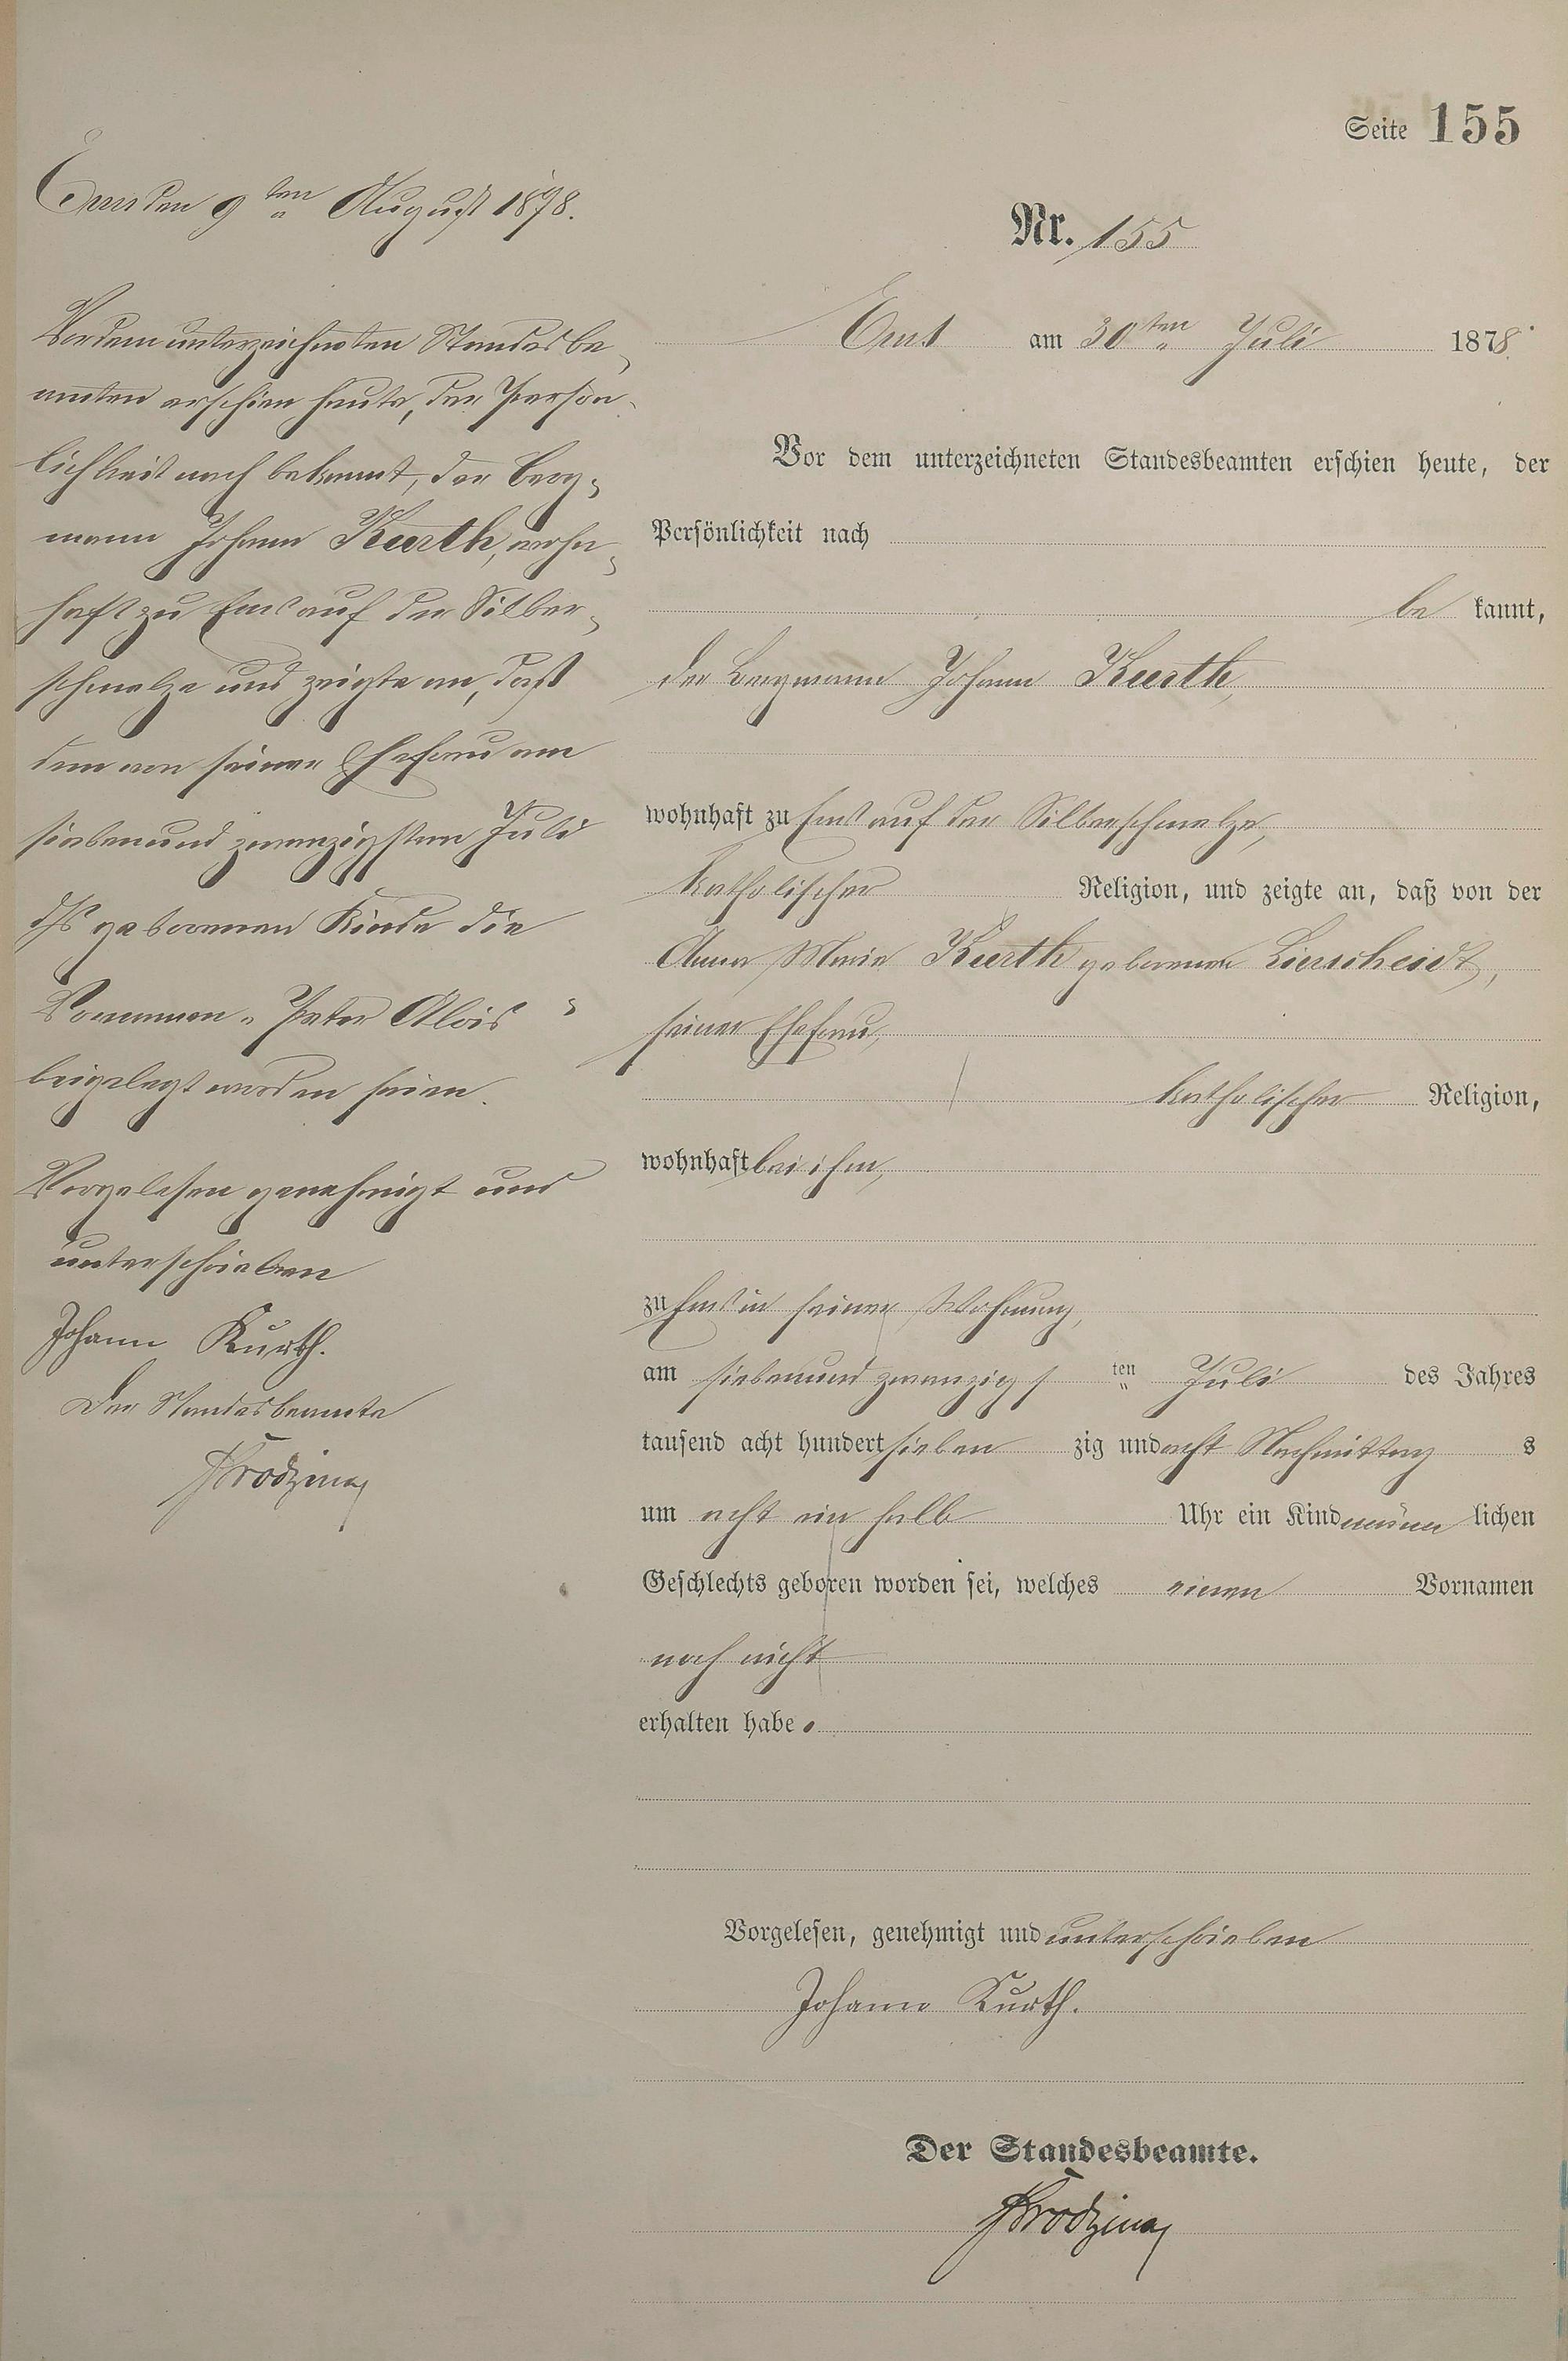 Seite 155
Ems den 9ten August 1878.
Vor dem unterzeichneten Standesbe-
amten erschien heute, der Persön-
lichkeit nach bekannt, der Berg-
mann Johann Kurth, wohn-
haft zu Ems auf der Silber-
schmelze und zeigte an, daß
dem von seiner Ehefrau am
siebenundzwanzigsten Juli
ds Js geborenen Kinde die
Vornamen „Peter Alois"
beigelegt worden seien.
Vorgelesen genehmigt und
unterschrieben
Johann Kurth.
Der Standesbeamte
Nr. 155
Ems am 30ten Juli 1878.
Vor dem unterzeichneten Standesbeamten erschien heute, der
Persönlichkeit nach
be kannt,
der Bergmann Johann Kurth,
wohnhaft zu Ems auf der Silberschmelze,
katholischer Religion, und zeigte an, daß von der
Anna Maria Kurth geborenen Lierscheidt,
seiner Ehefrau,
katholischer Religion,
wohnhaft bei ihm,
zu Ems in seiner Wohnung,
am siebenundzwanzigs ten Juli des Jahres
tausend acht hundert sieben zig und acht Nachmittag s
um acht ein halb Uhr ein Kind männ lichen
Geschlechts geboren worden sei, welches einen Vornamen
noch nicht
erhalten habe.
Vorgelesen, genehmigt und unterschrieben
Johann Kurth.
Der Standesbeamte.